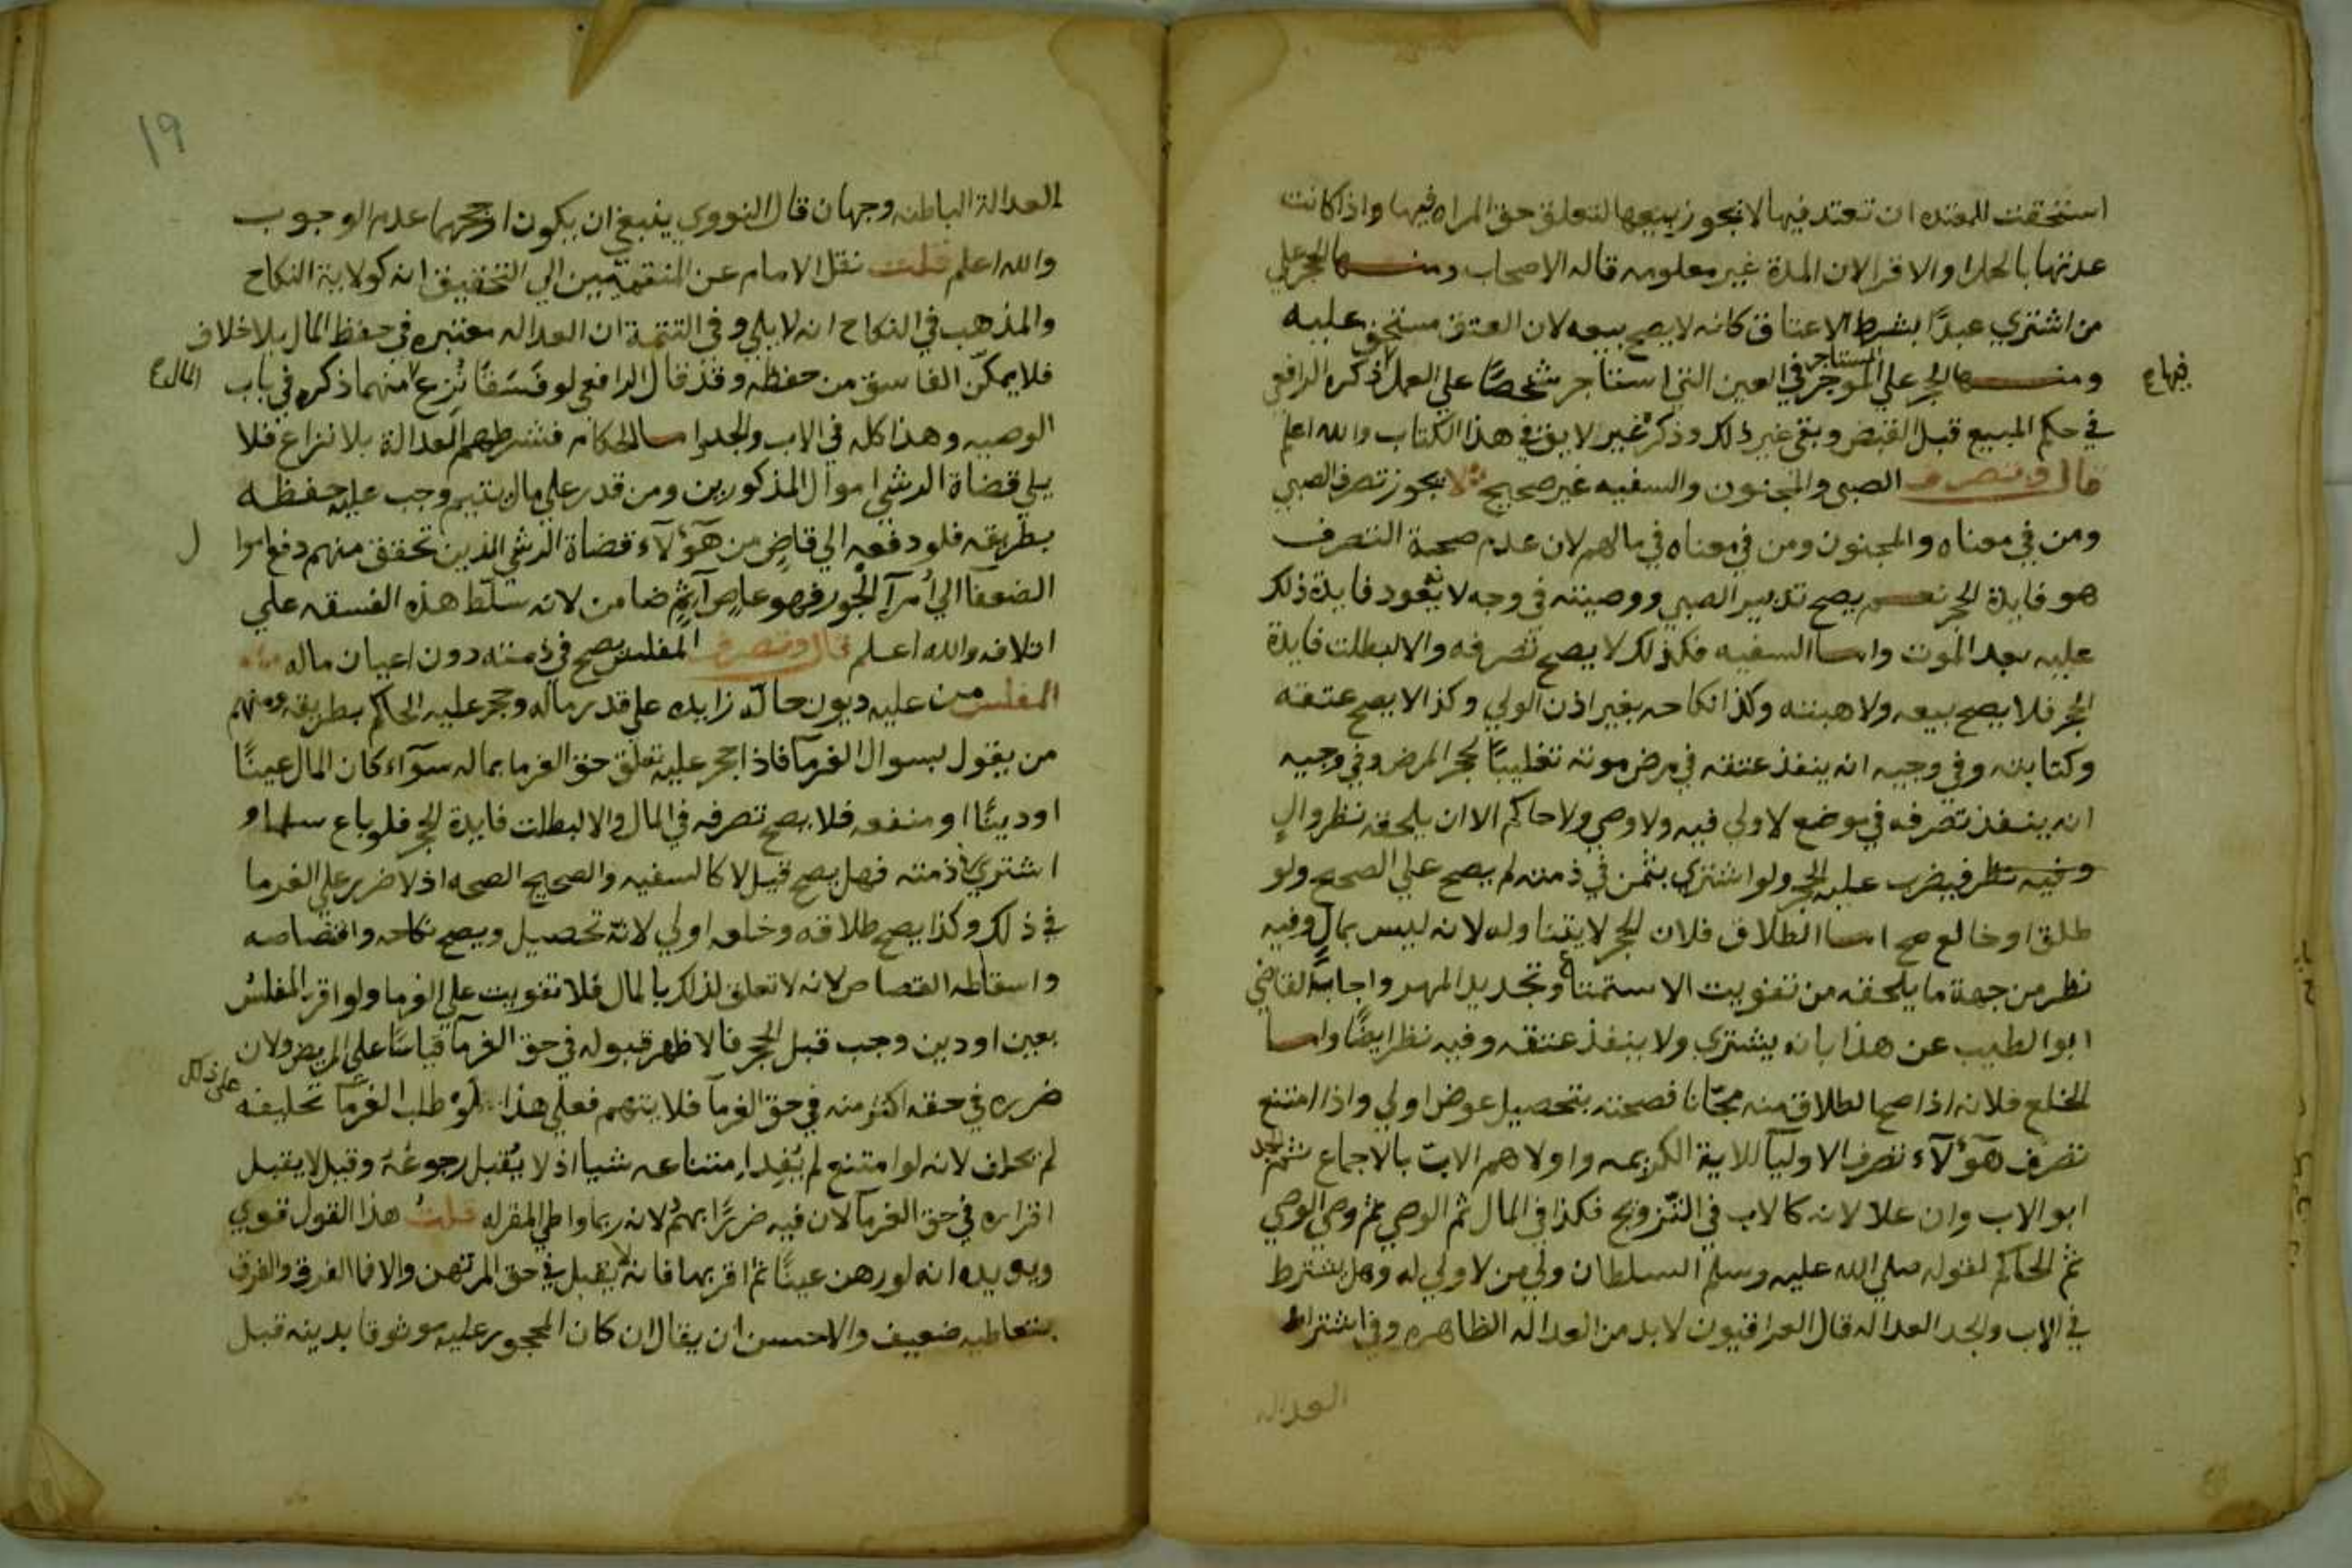 استحقت المعتده ان تعتد فيها لا يجوز بيعها لتعلق حق المراه فيها واذا كانت
عدتها بالحمل او الاقرا لان المدة غير معلومه قاله الاصحاب ومنها الحجر علي
من اشتري عبدًا بشرط الاعتاق كانه لا يصح بيعه لان العتق مستحق عليه
ومنها الحجر علي المستاجر الموجر في العين التي استاجر شخصًا علي العمل ذكره الرافعي
فيها
في حكم المبيع قبل القبض وبقي غير ذلك وذكره غير لايق في هذا الكتاب والله اعلم
قال وتصرف الصبي والمجنون والسفيه غير صحيح لا يجوز تصرف الصبي
ومن في معناه والمجنون ومن في معناه في مالهم لان عدم صحة التصرف
هو فايدة الحجر نعم يصح تدبير الصبي ووصيته في وجه لانه تعود فايدة ذلك
عليه بعد الموت واما السفيه فكذلك لا يصح تصرفه والا لبطلت فايدة
الحجر فلا يصح بيعه ولا هبته وكذا نكاحه بغير اذن الولي وكذا لا يصح عتقه
وكتابته وفي وجيه انه ينفذ عتقه في مرض موته تغليبًا لحجر المرض وفي وجيه
انه ينفذ تصرفه في موضع لا ولي فيه ولا وصي ولا حاكم الا ان يلحقه نظر والٍ
وفيه نظر فيضرب عليه الحجر ولو اشتري بثمن في ذمته لم يصح علي الصحيح ولو
طلق او خالع صح اما الطلاق فلان الحجر لا يتناوله لانه ليس بمالٍ وفيه
نظر من جهة ما يلحقه من تفويت الاستمتاع وتجديد المهر واجاب القاضي
ابو الطيب عن هذا بانه يشتري ولا ينفذ عتقه وفيه نظر ايضًا واما
الخلع فلانه اذا صح الطلاق منه مجّانا فصحته بتحصيل عوض اولي واذا امتنع
تصرف هؤلآء تصرف الاوليآ للاية الكريمه واولاهم الاب بالاجماع ثم الجد
ابو الاب وان علا لانه كالاب في التزويج فكذا في المال ثم الوصي ثم وصي الوصي
ثم الحاكم لقوله صلي الله عليه وسلم السلطان ولي من لا ولي له وهل يشترط
في الاب والجد العداله قال العراقيون لا بد من العداله الظاهره وفي اشتراط
العداله
١٩
العدالة الباطنه وجهان قال النووي ينبغي ان يكون ارجحهما عدم الوجوب
والله اعلم قلت نقل الامام عن المنتمين الي التحقيق انه كولاية النكاح
والمذهب في النكاح انه لا يلي وفي التتمة ان العداله معتبره في حفظ المال بلا خلاف
فلا يمكّن الفاسق من حفظه وقد قال الرافعي لو فَسَقًا نُزِع منهما ذكره في باب
المال
الوصيه وهذا كله في الاب والجد اما الحكام فشرطهم العدالة بلا نزاع فلا
يلي قضاة الرشي اموال المذكورين ومن قدر علي مال يتيم وجب عليه حفظه
بطريقه فلو دفعه الي قاضٍ من هؤلآء قضاة الرشي الذين تحقق منهم دفع اموا
ل
الضعفآ الي أُمرآ الجور فهو عاصٍ آثم ضامن لانه سلّط هذه الفسقه علي
اتلافه والله اعلم قال وتصرف المفلس يصح في ذمته دون اعيان ماله
المفلس من عليه ديون حالّه زايده علي قدر ماله وحجر عليه الحاكم بطريقه ومنهم
من يقول بسوال الغرمآ فاذا حجر عليه تعلق حق الغرما بماله سوآء كان المال عينًا
او دينًا او منفعه فلا يصح تصرفه في المال والا لبطلت فايدة الحجر فلو باع سلما او
اشتري في ذمته فهل يصح قيل لا كالسفيه والصحيح الصحه اذ لا ضرر علي الغرما
في ذلك وكذا يصح طلاقه وخلعه اولي لانّه تحصيل ويصح نكاحه واقتصاصه
واسقاطه القصاص لانه لا تعلق لذلك بالمال فلا تفويت علي الغرما ولو اقر المفلس
بعين او دين وجب قبل الحجر فالاظهر قبوله في حق الغرمآ قياسًا علي المريض ولان
ضرره في حقه اكثر منه في حق الغرمآ فلا يتهم فعلي هذا لو طلب الغرمآ تحليفه
علي ذلك
لم يحلف لانه لو امتنع لم يُفِد امتناعه شيا اذ لا يُقبل رجوعُهُ وقيل لا يقبل
اقراره في حق الغرمآ لان فيه ضررًا بهم ولانه ربما واطي المقر له قلت هذا القول قوي
ويويده انه لو رهن عينًا ثم اقر بها فانه لا يقبل في حق المرتهن والا فما الفرق والفرق
بتعاطيه ضعيف والاحسن ان يقال ان كان المحجور عليه موثوقا بدينه قبل